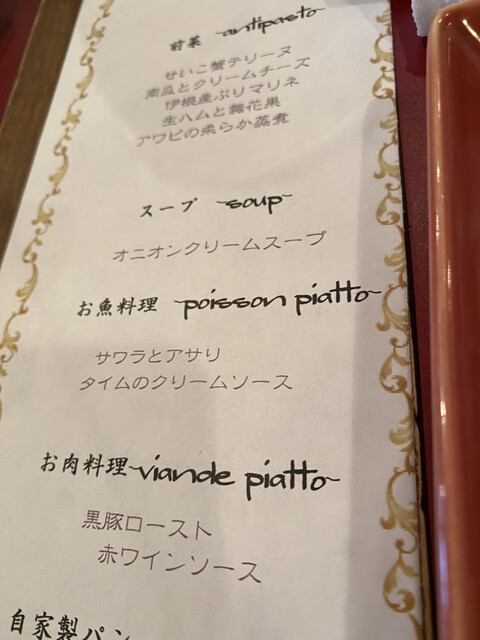 前菜 ~antipasto~
せいこ蟹テリーヌ
南瓜とクリームチーズ
伊根産ぶりマリネ
生ハムと無花果
アワビの柔らか蒸煮
スープ ~soup~
オニオンクリームスープ
お魚料理 ~poisson piatto~
サワラとアサリ
タイムのクリームソース
お肉料理 ~viande piatto~
黒豚ロースト
赤ワインソース
自家製パン